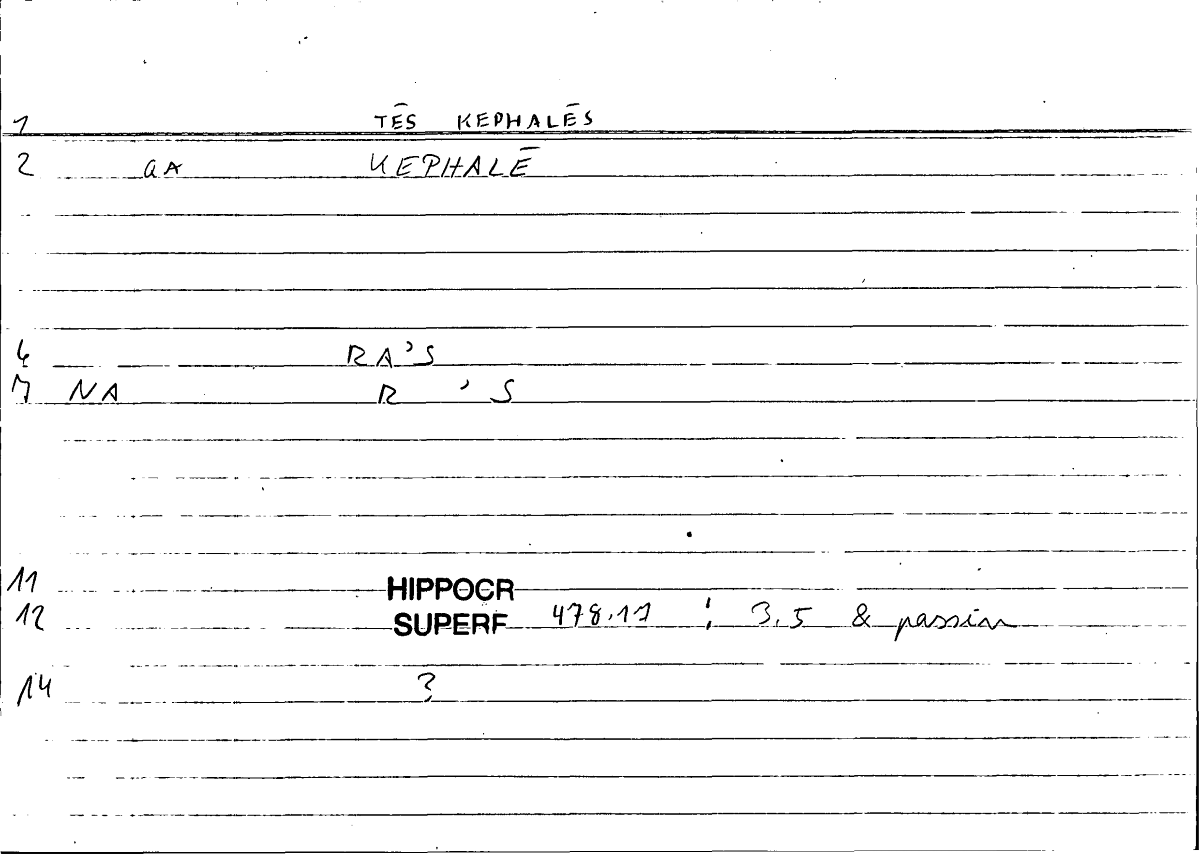 1 TĒS KEPHALĒS
2 GA KEPHALĒ
4 RA'S
7 NA R ' S
11 HIPPOCR
12 SUPERF 478.17 : 3.5 & passim
14 ?